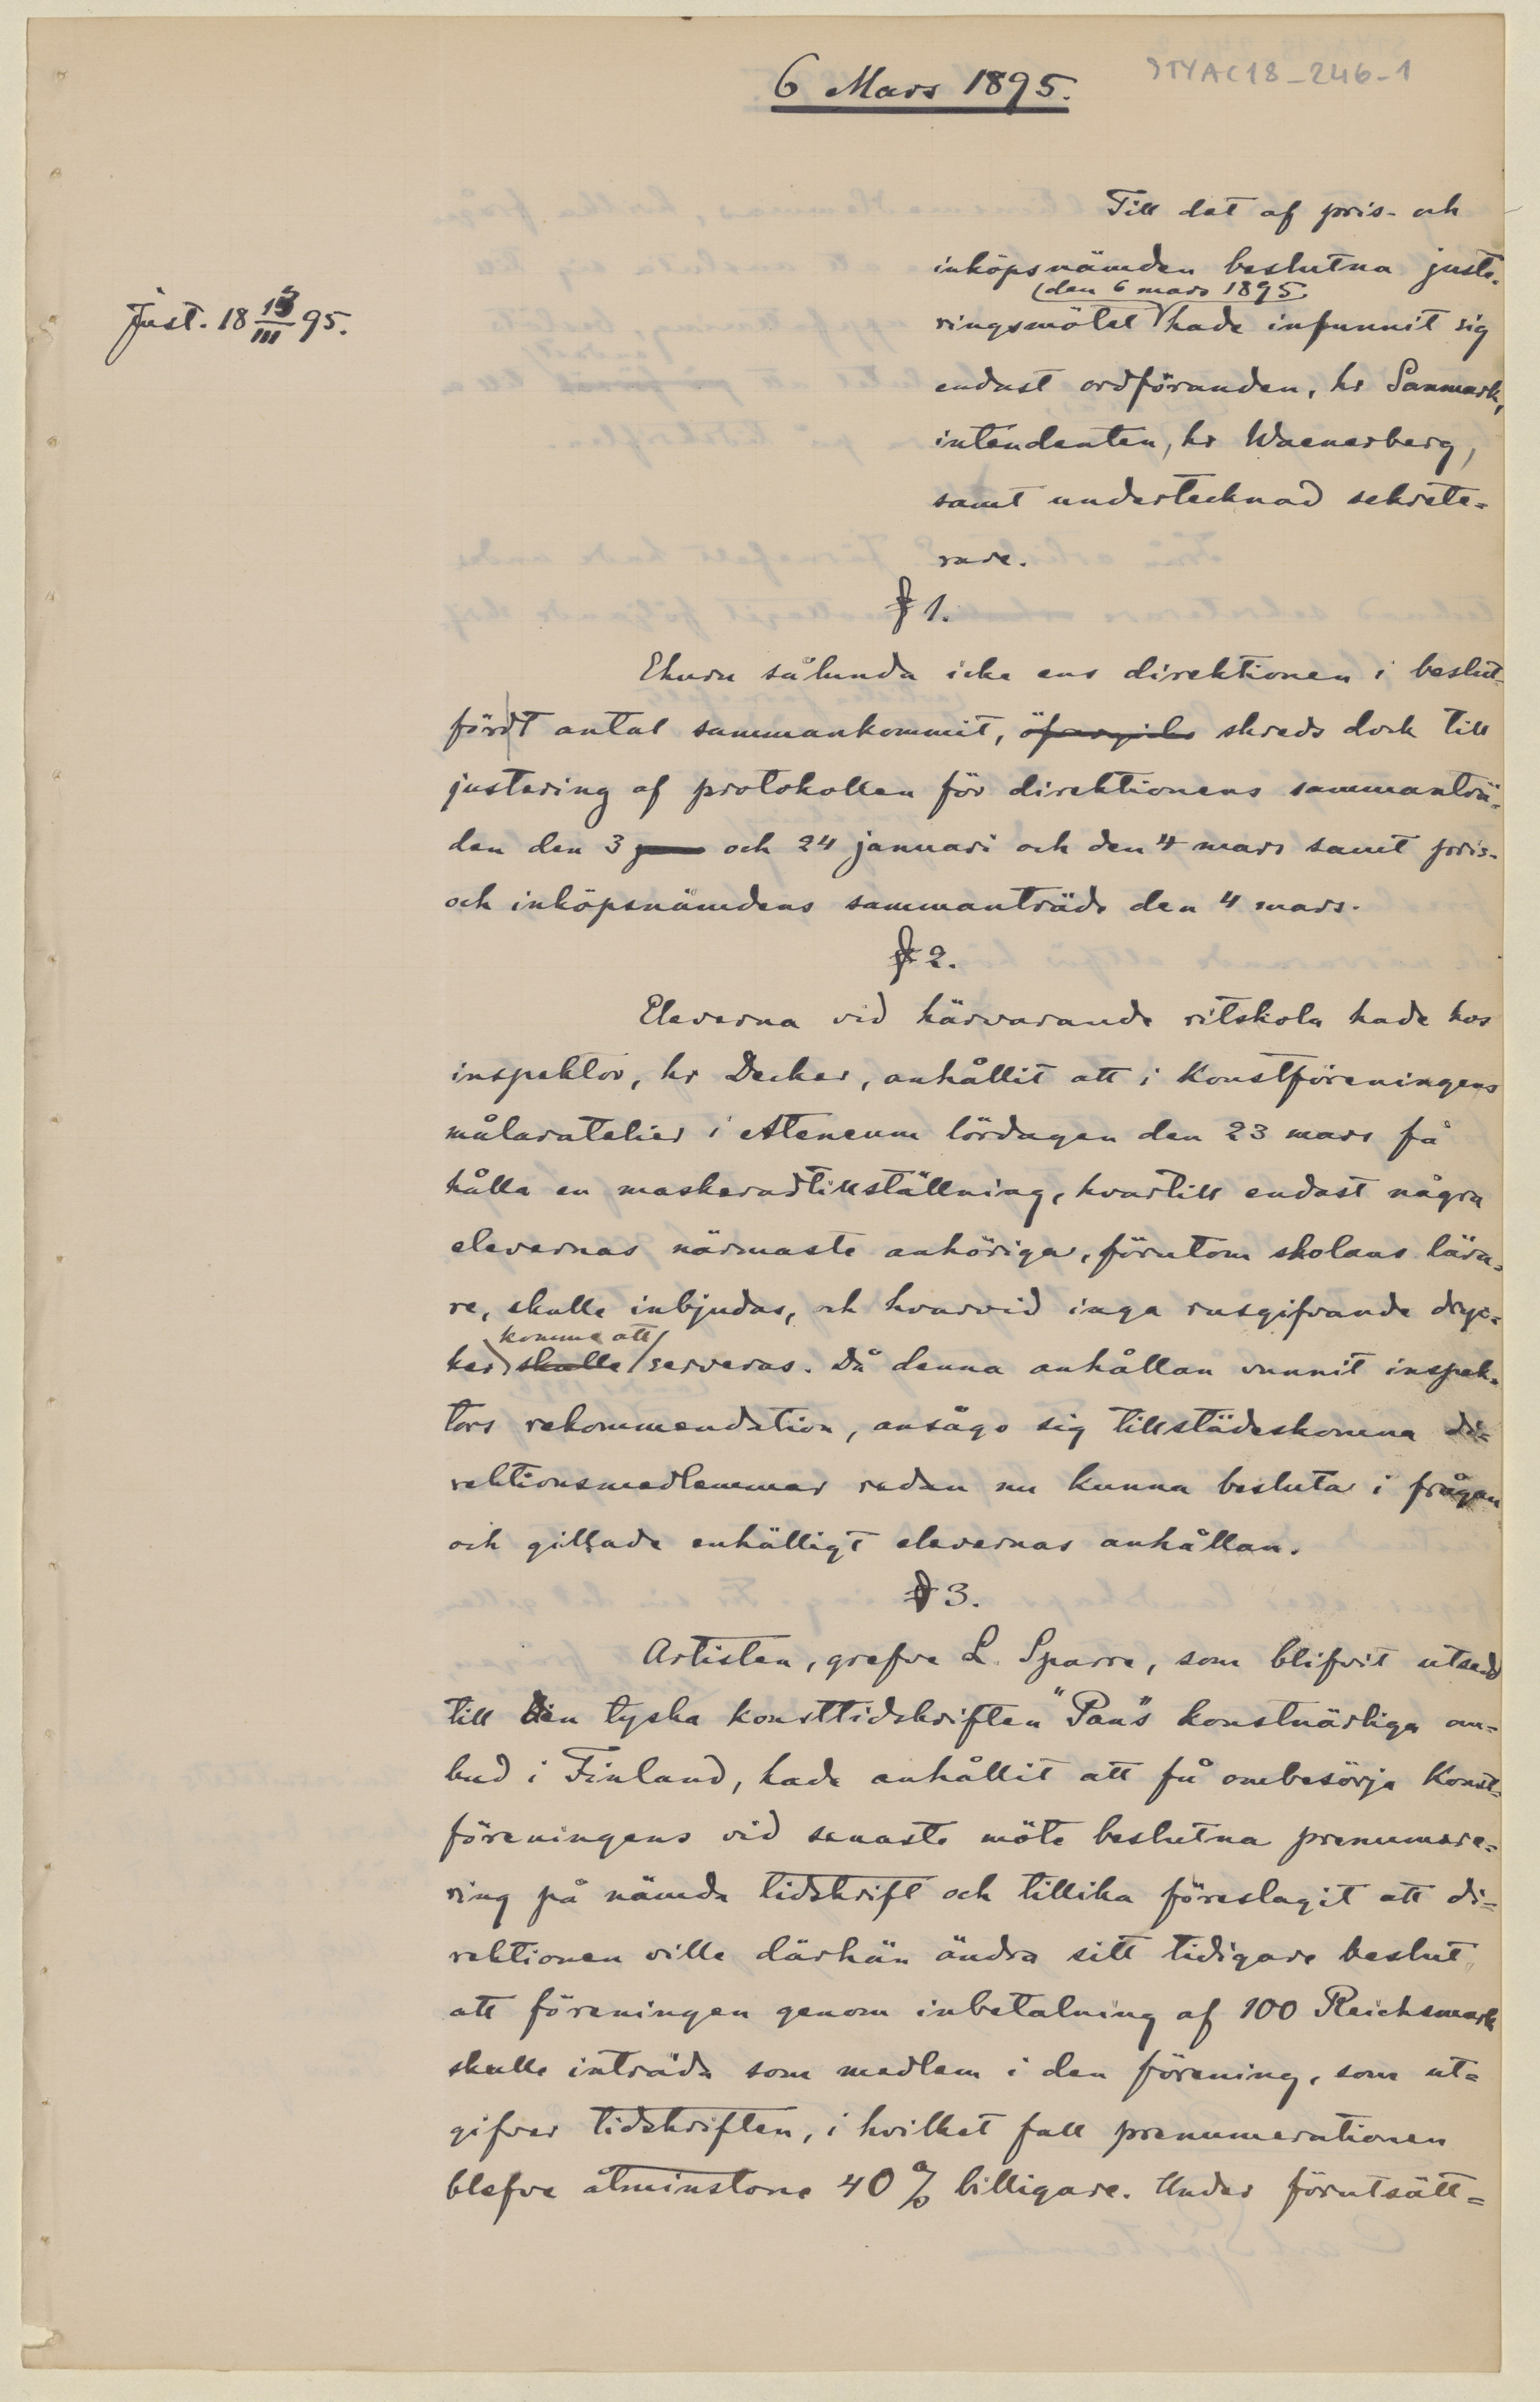 6 Mars 1895.
STYAC18_246-1
Till det af pris- och
inköpsnämden beslutna juste-
(den 6 mars 1895)
ringsmötet hade infunnit sig
Just. 18 13/III 95.
endast ordföranden, hr Sanmark,
intendenten, hr Waenerberg,
samt undertecknad sekrete=
rare.
§ 1.
Ehuru sålunda icke ens direktionen i beslut-
fördt antal sammankommit, skreds dock till
justering af protokollen för direktionens sammanträ-
den den 3 och 24 januari och den 4 mars samt pris-
och inköpsnämdens sammanträde den 4 mars.
§ 2.
Eleverna vid härvarande ritskola hade hos
inspektor, hr Decker, anhållit att i Konstföreningens
målaratelier i Ateneum lördagen den 23 mars få
hålla en maskeradtillställning, hvartill endast några
elevernas närmaste anhöriga, förutom skolans lära-
re, skulle inbjudas, och hvarvid inga rusgifvande dryc-
komme att
ker skulle serveras. Då denna anhållan vunnit inspek-
tors rekommendation, ansågo sig tillstädeskomna di=
rektionsmedlemmar redan nu kunna besluta i frågan
och gillade enhälligt elevernas anhållan.
§ 3.
Artisten, grefve L. Sparre, som blifvit utsedd
till den tyska konsttidskriften "Pan"s konstnärliga om=
bud i Finland, hade anhållit att få ombesörja Konst=
föreningens vid senaste möte beslutna prenumere=
ring på nämda tidskrift och tillika föreslagit att di=
rektionen ville därhän ändra sitt tidigare beslut
att föreningen genom inbetalning af 100 Reichsmark
skulle inträda som medlem i den förening, som ut=
gifver tidskriften, i hvilket fall prenumerationen
blefve åtminstone 40 % billigare. Under förutsätt=